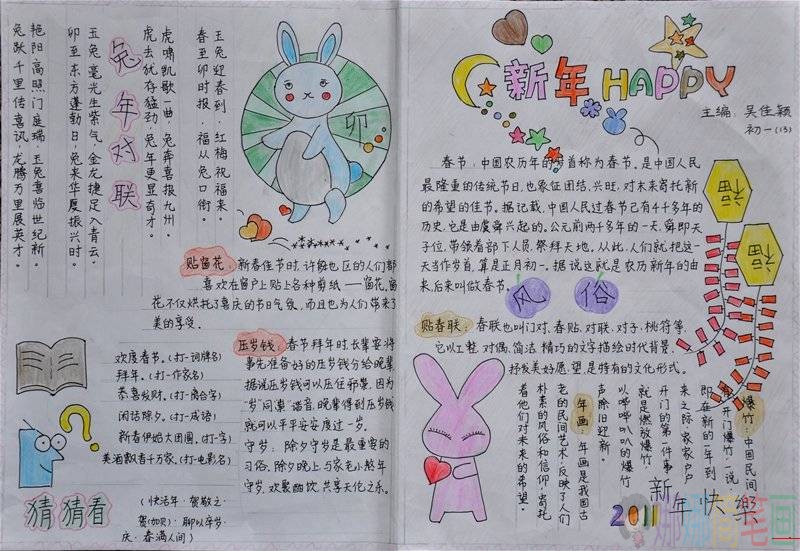 新年HAPPY
主编：吴佳颖
初一(13)
春节：中国农历年的岁首称为春节。是中国人民
最隆重的传统节日,也象征团结、兴旺,对未来寄托新
的希望的佳节。据记载,中国人民过春节已有4千多年的
历史,它是由虞舜兴起的。公元前两千多年的一天,舜即天
子位,带领着部下人员,祭拜天地。从此,人们就把这一
天当作岁首,算是正月初一。据说这就是农历新年的由
来,后来叫做春节。
福
福
风俗
贴春联：春联也叫门对、春贴、对联、对子、桃符等,
它以工整、对偶、简洁、精巧的文字描绘时代背景、
抒发美好愿望,是特有的文化形式。
爆竹：中国民间
有开门爆竹一说
即在新的一年到
来之际,家家户户
开门的第一件事
就是燃放爆竹,
以哔哔叭叭的爆竹
声除旧迎新。
年画：年画是我国古
老的民间艺术,反映了人们
朴素的风俗和信仰,寄托
着他们对未来的希望。
新年快樂
2011
兔年对联
玉兔迎春到,红梅祝福来。
春至卯时报,福从兔口衔。
虎啸凯歌一曲,兔奔喜报九州。
虎去犹存猛劲,兔年更显奇才。
玉兔毫光生紫气,金龙捷足入青云。
卯至东方蓬勃日,兔来华夏振兴时。
艳阳高照门庭瑞,玉兔喜临世纪新。
兔跃千里传喜讯,龙腾万里展英才。
卯
贴窗花：新春佳节时,许多地区的人们都
喜欢在窗户上贴上各种剪纸——窗花。窗
花不仅烘托了喜庆的节日气氛,而且也为人们带来了
美的享受。
压岁钱：春节拜年时,长辈要将
事先准备好的压岁钱分给晚辈,
据说压岁钱可以压住邪祟,因为
“岁”同“祟”谐音,晚辈得到压岁钱
就可以平平安安度过一岁。
守岁：除夕守岁是最重要的
习俗,除夕晚上,与家老小熬年
守岁,欢聚酣饮,共享天伦之乐。
欢度春节。(打一词牌名)
拜年。(打一作家名)
恭喜发财。(打一离合字)
闲话除夕。(打一成语)
新春伊始大团圆。(打一字)
美酒飘香千万家。(打一电影名)
猜猜看
(快活年·贺敬之·
贺(加贝)·聊以卒岁·
庆·春满人间)